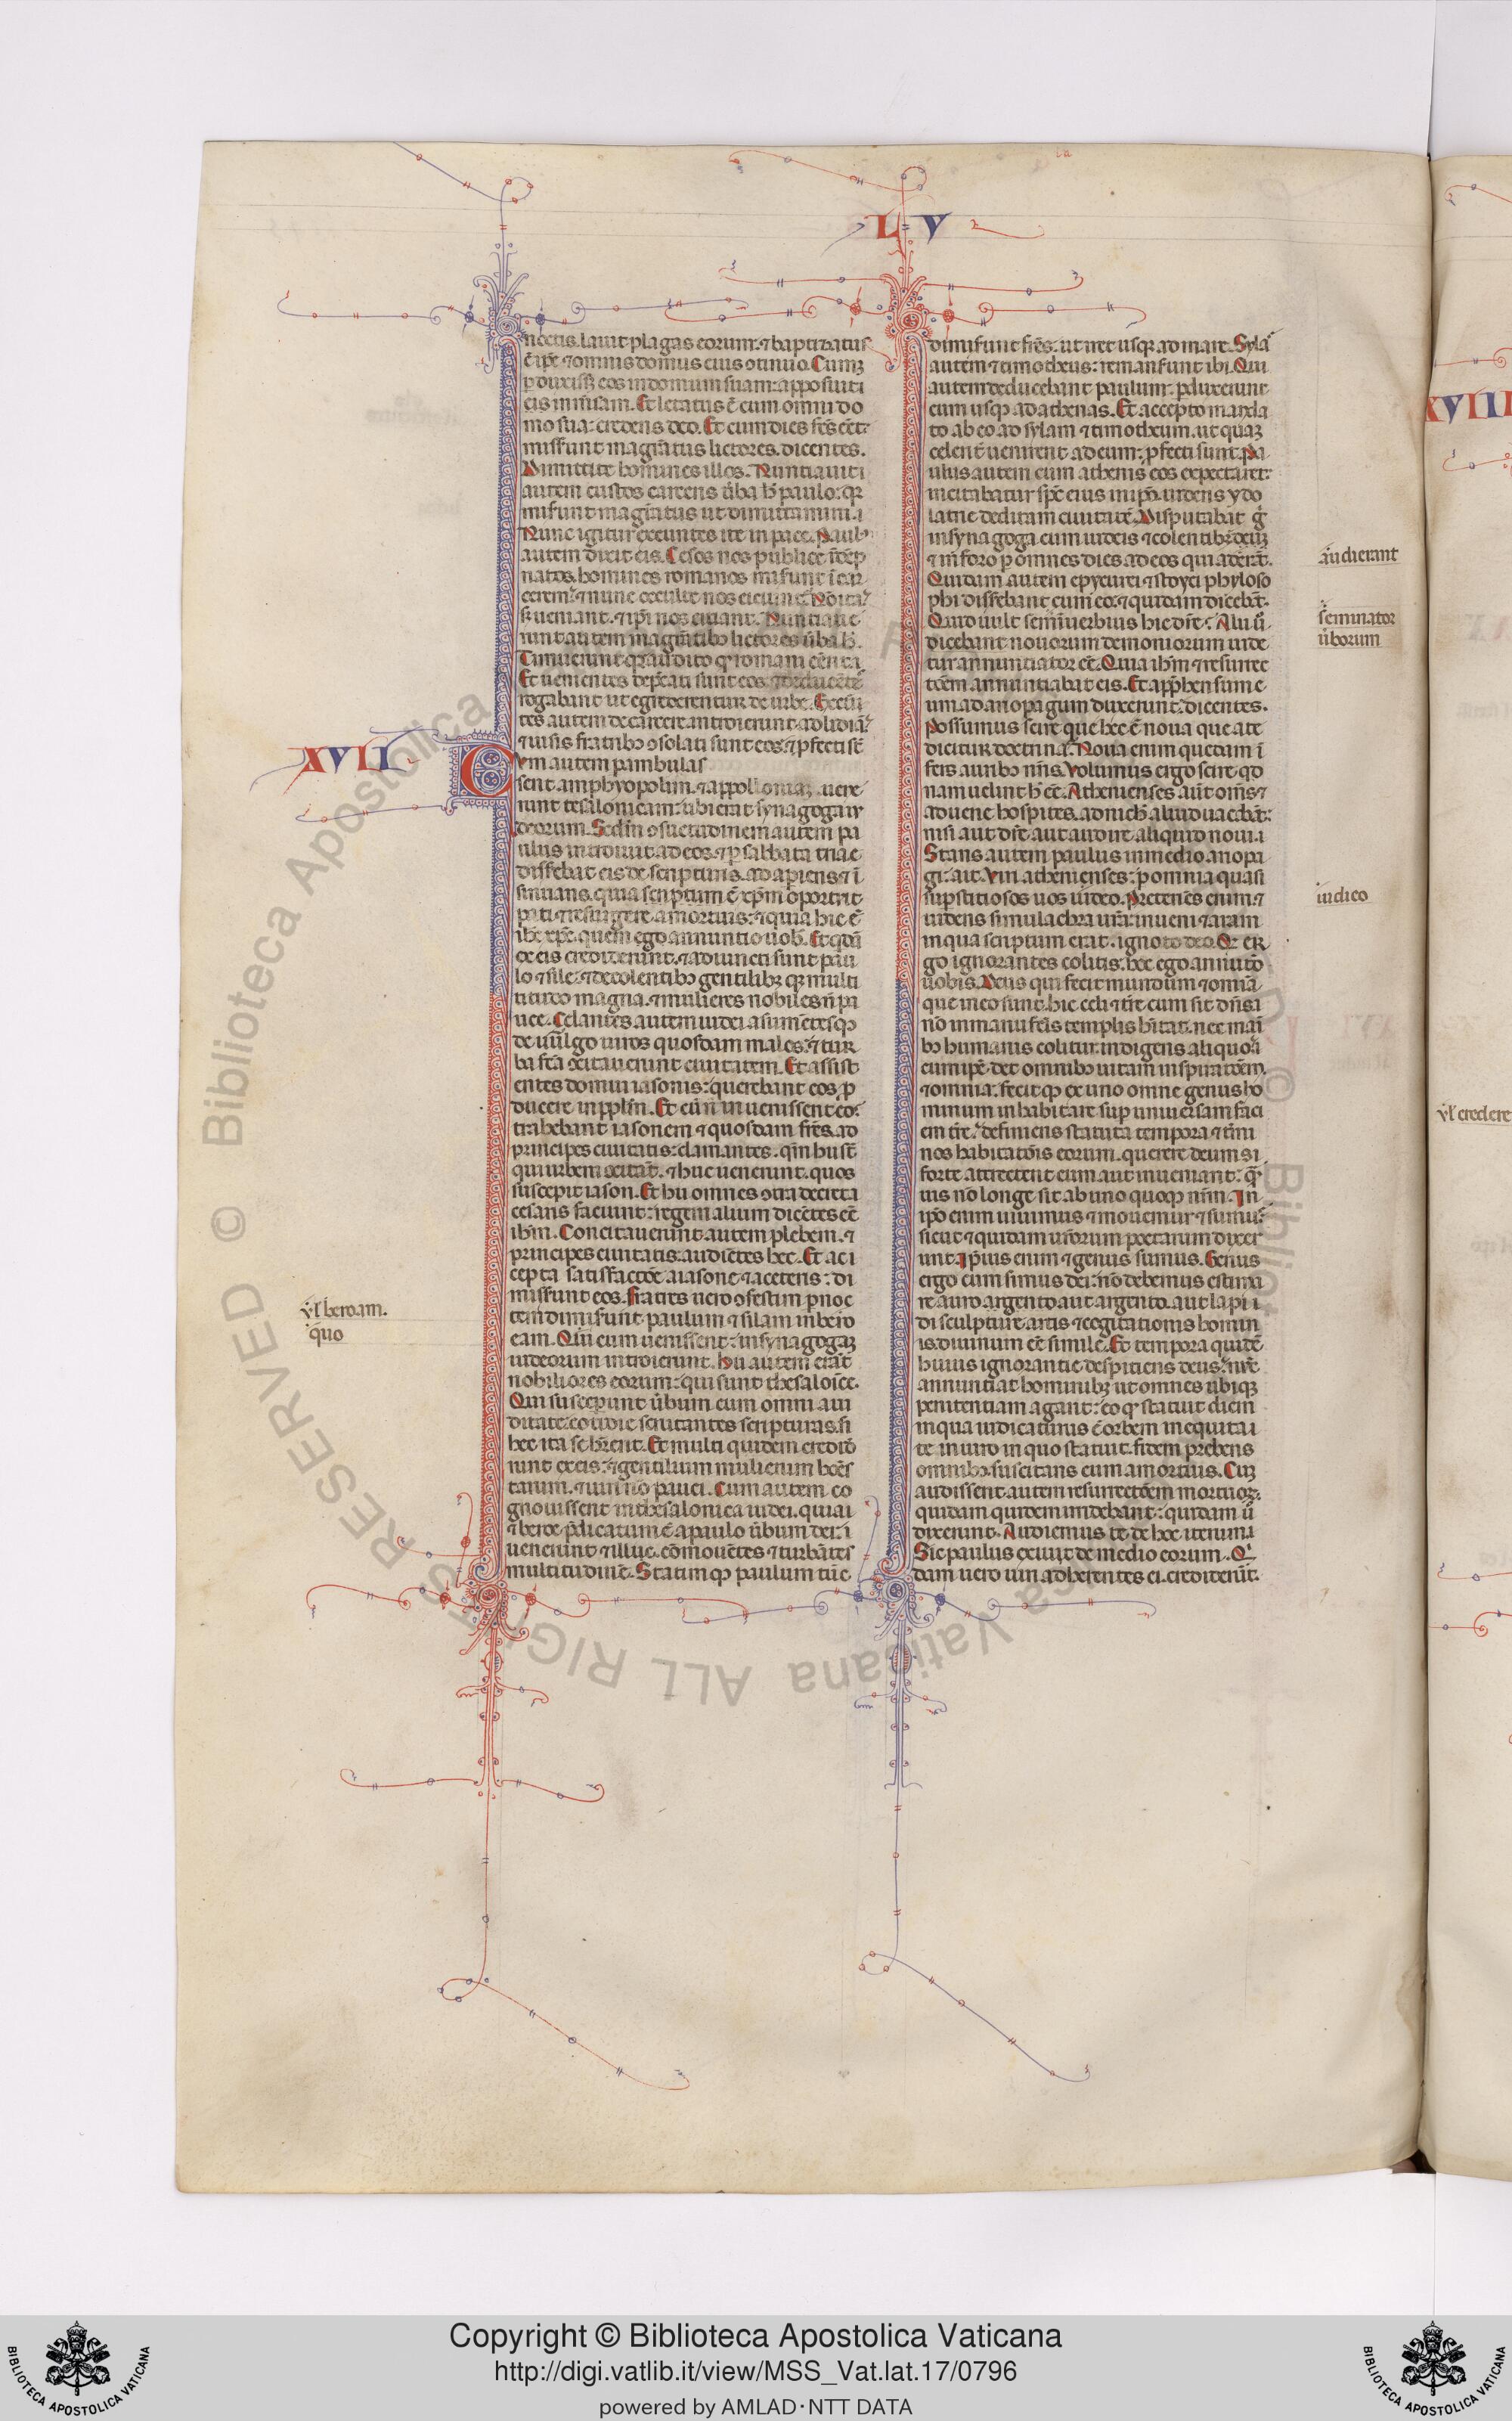 L V
noctis. lauit plagas eorum. ⁊ baptizatus
ē ip̄e ⁊ omnis domus eius ↄtinuo. Cumqꝫ
ꝑduxiss; eos in domum suam: apposuit i
eis mensam. Et letatus ē cum omni do
mo sua: credens deo. Et cum dies fc̄s eēt:
misērunt magr̄atus lictores. dicentes.
Dimittite homines illos. Nuntiauit i
autem custos carceris ūba h̄ paulo: qꝛ
miserunt magr̄atus ut dimittamini. i
Nunc igitur exeuntes ite in pace. Paulꝰ
autem dixit eis. Cesos nos publice īdēp
natos. homines romanos miserunt ī car
cerem: ⁊ nunc occulte nos eiciunt. Nō ita:
s; ueniant. ⁊ ip̄i nos eiciant. Nuntiaue
runt autem magr̄atibꝰ lictores ūba h̄.
Timuerunt qꝫ audito qꝫ romani eēnt. i
Et uenientes dep̄cati sunt eos. ⁊ educēte
rogabant ut egrederentur de urbe. Exeū
tes autem de carcere. introierunt ad lidiā:
⁊ uisis fratribꝰ ↄsolati sunt eos: ⁊ ꝓfecti sūt
XVII
Cvm autem pambulas
sent amphyopolim. ⁊ appolloniaꝫ. uene
runt tesalonicam: ubi erat synagoga iu
deorum. Scd̄m ↄsuetudinem autem pa
ulus introiuit. ad eos. ⁊ ꝑ sabbata tria e
disserebat eis de scripturis. adaperiens ⁊ ī
sinuans. quia scriptum ē xp̄m oportuit
pati ⁊ resurgere. a mortuis: ⁊ quia hic ē
ih̄c xp̄c. quem ego annuntio uob̄. Et qdā
ex eis crediderunt. ⁊ adiuncti sunt pau
lo ⁊ sile: ⁊ de colentibꝰ gentilibꝫ qꝫ multi
titudo magna. ⁊ mulieres nobiles n̄ pa
uce. Celantes autem iudei. asumētesqꝫ
de uulgo uiros quosdam malos: ⁊ tur
ba fc̄a ↄcitauerunt ciuitatem. Et assist
entes domui iasonis: querebant eos: p
ducere in pplm̄. Et cū n̄ inuenissent eos:
trahebant iasonem ⁊ quosdam fr̄es. ad
principes ciuitatis: clamantes. qm̄ hii sūt
qui urbem ↄcitāt. ⁊ huc uenerunt. quos
suscepit iason. Et hii omnes ↄtra decreta
cesaris faciunt: regem alium dicētes eē
ih̄m. Concitauerunt autem plebem. ⁊
principes ciuitatis. audiētes hec. Et ac i
cepta satisfactōe. a iasone ⁊ a ceteris: di
miserunt eos. Fratres uero ↄfestim ꝑ noc
tem dimiserūt. paulum ⁊ silam in bero
eam. Qui cum uenissent: in synagogaꝫ
iudeorum introierunt. Hii autem erāt
nobiliores eorum: qui sunt thesaloīce.
Qui susceperunt ūbum cum omni aui
ditate: cotidie scrutantes scripturas. si
hec ita se hr̄ent. Et multi quidem credid
runt ex eis: ⁊ gentilium mulierum hōes
tarum. ⁊ uiri nō pauci. Cum autem co
gnouissent in thesalonica iudei. quia i
⁊ beroe p̄dicatum ē a paulo ūbum dei: i
uenerunt ⁊ illuc. cōmouētes ⁊ turbātes
multitudinē. Statimqꝫ paulum tūc
ul̄ beroam.
quo
dimiserunt fr̄es: ut iret usqꝫ ad mare. Syla
autem ⁊ timotheus: remanserunt ibi. Qui
autem deducebant paulum: ꝑduxerunt
eum usqꝫ ad athenas. Et accepto manda
to ab eo ad sylam ⁊ timotheum. ut quaꝫ
celerit̄ uenirent ad eum: ꝓfecti sunt. Pa
ulus autem cum athenis eos expectaret:
incitabatur sp̄c eius in ip̄o. uidens ydo
latrie deditam ciuitatē. Disputabat g̉
in synagoga cum iudeis ⁊ colentibꝫ deuꝫ
⁊ in foro ꝑ omnes dies ad eos qui aderāt.
Quidam autem epycurei ⁊ stoyci phyloso
phi disserebant cum eo: ⁊ quidam dicebāt.
Quid uult semīuerbius hic dic̄e: Alii ū
dicebant nouorum demoniorum uide
tur annuntiator eē. Quia ih̄m ⁊ resurrec
tōem annuntiabat eis. Et app̄hensum e
um ad ariopagum duxerunt: dicentes.
Possumus scire que hec ē noua que a te
dicitur doctrina. Noua enim quedam ī
fers auribꝰ nr̄is. Volumus ergo scire. qd
nam uelint h̄ eē. Athenienses aūt om̄s ⁊
aduene hospites. ad nich̄ aliud uacabāt:
nisi aut dic̄e. aut audire aliquid noui. i
Stans autem paulus in medio ariopa
gi: ait. Viri athenienses: ꝑ omnia quasi
suꝑstitiosos uos uideo. Preteriēs enim. ⁊
uidens simulachra ur̄a: inueni ⁊ aram
in qua scriptum erat: ignoto deo. Qd̄ er
go ignorantes colitis: hec ego annūtio
uobis. Deus qui fecit mundum ⁊ omnia
que in eo sunt. hic celi ⁊ tr̄e cum sit dn̄s. i
nō in manufc̄is templis hītat. nec mani
bꝰ humanis colitur. indigens aliquo. i
cum ip̄e det omnibꝰ uitam inspiratōem.
⁊ omnia: fecitqꝫ ex uno omne genus ho
minum inhabitare suꝑ uniuersam faci
em tr̄e. definiens statuta tempora ⁊ tīmi
nos habitatōis eorum. querere deum si
forte attrectent eum aut inueniant: qꝫ
uis nō longe sit ab uno quoqꝫ nr̄m. In
ip̄o enim uiuimus ⁊ mouemur ⁊ sumus:
sicut ⁊ quidam ur̄orum poetarum dixer
unt. Ip̄ius enim ⁊ genus sumus. Genus
ergo cum simus dei: nō debemus estima
re auro argento aut argento. aut lapi i
di sculpture artis ⁊ cogitationis homin
is. diuinum eē simile. Et tempora quidē
huius ignorantie despiciens deus: nūc
annuntiat hominibꝫ ut omnes ubiqꝫ
penitentiam agant: eo qꝫ statuit diem
in qua iudicaturus ē orbem in equita i
te in uiro in quo statuit. fidem prebens
omnibꝰ. suscitans eum a mortuis. Cuꝫ
audissent autem resurrectōem mortuoꝝ.
quidam quidem irridebant: quidam ū
dixerunt. Audiemus te de hoc iterum. i
Sic paulus exiuit de medio eorum. Qi
dam uero uiri adherentes ei. crediderūt.
audierant
seminator
ūborum
iudico
XVIII
ul̄ credere
Copyright © Biblioteca Apostolica Vaticana
http://digi.vatlib.it/view/MSS_Vat.lat.17/0796
powered by AMLAD·NTT DATA
BIBLIOTECA APOSTOLICA VATICANA
BIBLIOTECA APOSTOLICA VATICANA
© Biblioteca Apostolica Vaticana ALL RIGHTS RESERVED